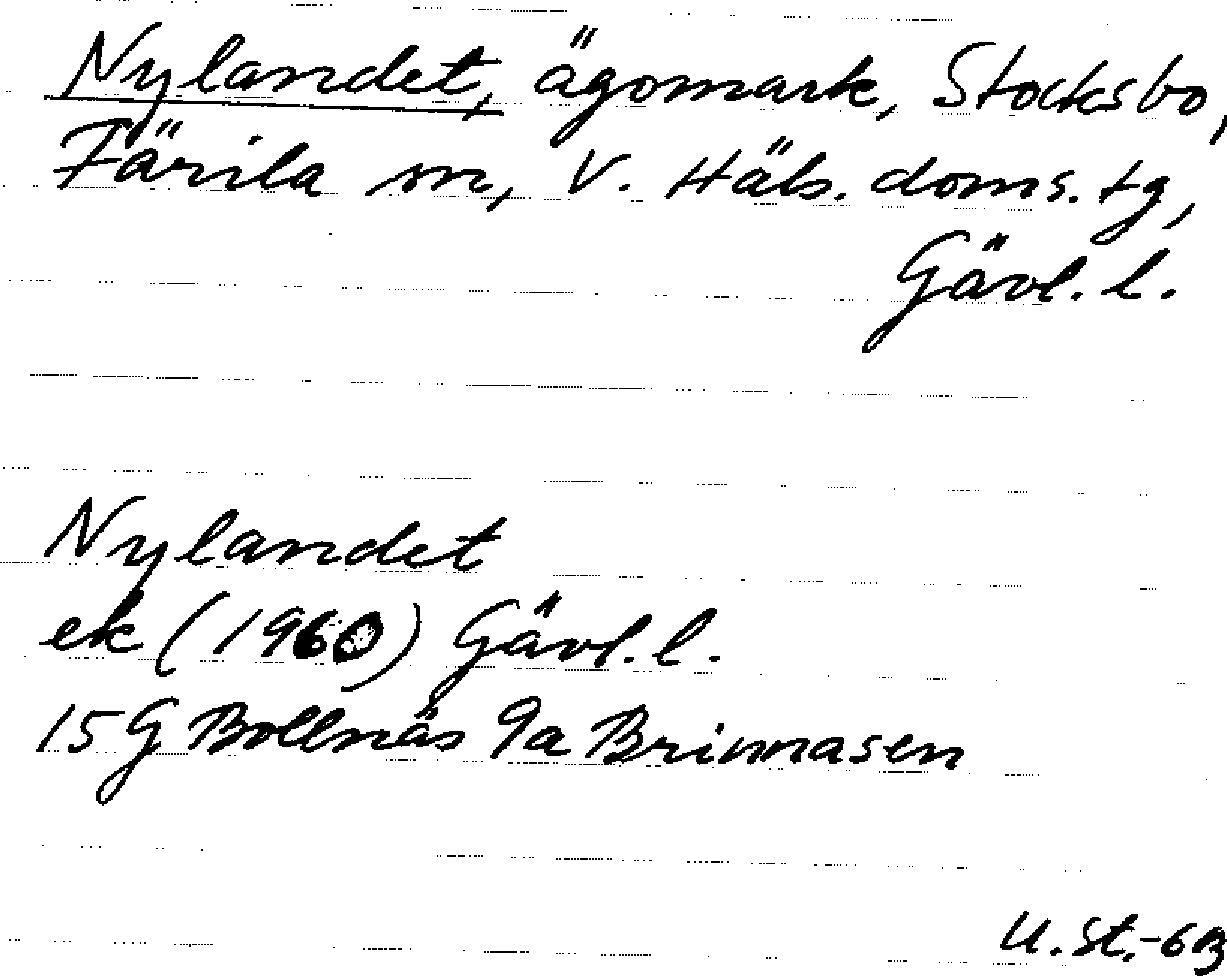 Nylandet, ägomark, Stocksbo,
Färila sn, V. Häls. doms. tg,
Gävl. l.
Nylandet
ek (1960) Gävl. l.
15 G Bollnäs 9a Brinnasen
U. St. -63